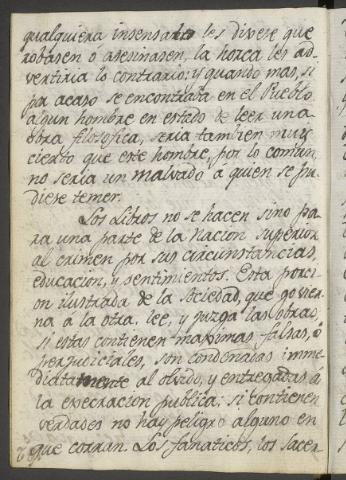 qualquiera insensato les dixese que
robasen ó asesinasen, la horca les ad-
vertiria lo contrario; y quando mas, si
por acaso se encontraba en el Pueblo
algun hombre en estado de leer una
obra filosofica, seria tambien muy
cierto que este hombre, por lo comun,
no seria un malvado a quien se pu-
diese temer.
Los Libros no se hacen sino pa-
ra una parte de la Nacion superior
al crimen por sus circunstancias,
educacion, y sentimientos. Esta porci-
on ilustrada de la Sociedad, que govier-
na á la otra, lee, y juzga las obras,
si estas contienen maximas falsas, ó
perjudiciales, son condenadas imme-
diatamente al olvido, y entregadas á
la execracion publica: si contienen
verdades no hay peligro alguno en
que corran. Los fanaticos, los sacer-